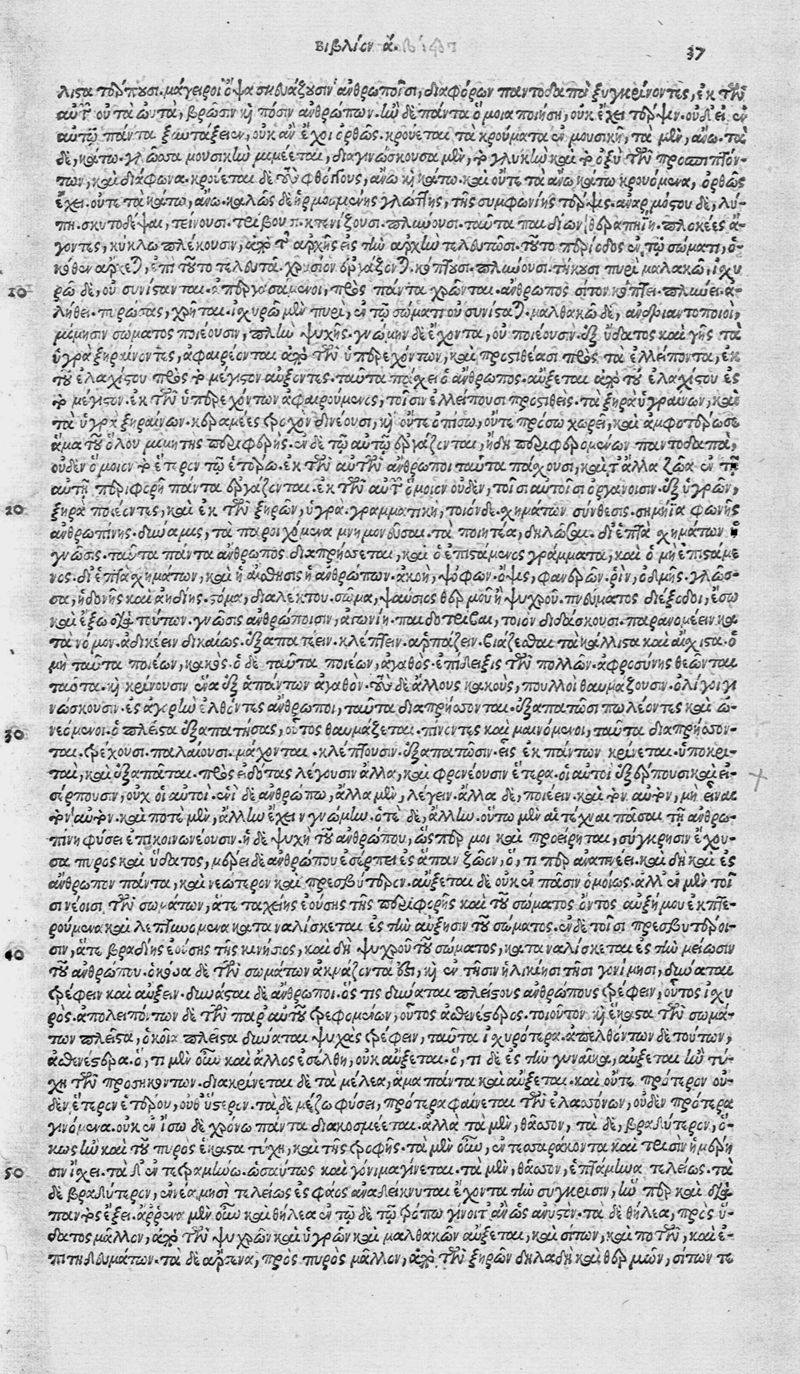 Βιβλίον ά. 37
λιϛα τέρπουσι. μάγειροι ὄψα σκευάζουσιν ἀνθρώποισι, διαφόρων παντοδαπὰ ξυγκρίνοντες, ἐκ τῶν
αὐτῶν οὐ τὰ ὠυτὰ, βρῶσιν καὶ πόσιν ἀνθρώπων. ἢν δὲ πάντα ὅμοια ποιήσῃ, οὐκ ἔχει τέρψιν. οὐδ' εἰ ἐν
αὐτῷ πάντα ξυντάξειεν, οὐκ ἂν ἔχοι ὀρθῶς. κρούεται τὰ κρούματα ἐν μουσικῇ, τὰ μὲν, ἄνω. τὰ
δὲ, κάτω. γλῶσσα μουσικὴν μιμέεται, διαγινώσκουσα μὲν, τὸ γλυκὺ καὶ τὸ ὀξὺ τῶν προσπιπτόν-
των, καὶ διάφωνα. κρούεται δὲ τοὺς φθόγγους, ἄνω καὶ κάτω. καὶ οὔτε τὰ ἄνω κάτω κρουόμενα, ὀρθῶς
ἔχει. οὔτε τὰ κάτω, ἄνω. καλῶς δὲ ἡρμοσμένης γλώττης, τῆς συμφωνίης τέρψις. ἀναρμόστου δὲ, λύ-
πη. σκυτοδέψαι, τείνουσι. τρίβουσι. κτενίζουσι. πλύνουσι. ταῦτα παιδίων θεραπηίη. πλοκέες ἄ-
γοντες, κύκλῳ πλέκουσιν, ἀπὸ τῆς ἀρχῆς εἰς τὴν ἀρχὴν τελευτῶσι. τοῦτο περίοδος ἐν τῷ σώματι, ὁ-
κόθεν ἄρχεται, ἐπὶ τοῦτο τελευτᾷ. χρυσίον ἐργάζονται. κόπτουσι. πλύνουσι. τήκουσι πυρὶ μαλακῷ, ἰσχυ
10 ρῷ δὲ, οὐ συνίϛανται. ἀπεργασάμενοι, πρὸς πάντα χρῶνται. ἄνθρωπος σῖτον κόπτει. πλύνει. ἀ-
λήθει. πυρώσας, χρῆται. ἰσχυρῷ μὲν πυρὶ, ἐν τῷ σώματι οὐ συνίϛαται. μαλθακῷ δὲ, ἀνδριαντοποιοὶ,
μίμησιν σώματος ποιέουσιν, πλὴν ψυχῆς. γνώμην δὲ ἔχοντα, οὐ ποιέουσιν. ἐξ ὕδατος καὶ γῆς τὰ
ὑγρὰ ξηραίνοντες, ἀφαιρέονται ἀπὸ τῶν ὑπερεχόντων, καὶ προστιθέασι πρὸς τὰ ἐλλείποντα, ἐκ
τοῦ ἐλαχίϛου πρὸς τὸ μέγιϛον αὔξοντες. ταῦτα πάσχει ὁ ἄνθρωπος. αὔξεται ἀπὸ τοῦ ἐλαχίϛου ἐς
τὸ μέγιϛον. ἐκ τῶν ὑπερεχόντων ἀφαιρούμενος, τοῖσιν ἐλλείπουσι προστιθείς. τὰ ξηρὰ ὑγραίνων, καὶ
τὰ ὑγρὰ ξηραίνων. κεραμέες τροχὸν δινέουσι, καὶ οὔτε ὀπίσω, οὔτε πρόσω χωρεῖ, καὶ ἀμφοτέρωσε
ἅμα τοῦ ὅλου μιμητὴς περιφορῆς. ἐν δὲ τῷ αὐτῷ ἐργάζονται, ἤδη περιφερομένων παντοδαπὰ,
οὐδὲν ὅμοιον τὸ ἕτερον τῷ ἑτέρῳ. ἐκ τῶν αὐτῶν ἄνθρωποι ταῦτα πάσχουσι, καὶ τ' ἄλλα ζῶα ἐν τῇ
αὐτῇ περιφορῇ πάντα ἐργάζονται. ἐκ τῶν αὐτῶν ὅμοιον οὐδὲν, τοῖσι αὐτοῖσι ὀργάνοισιν. ἐξ ὑγρῶν,
20 ξηρὰ ποιέοντες, καὶ ἐκ τῶν ξηρῶν, ὑγρά. γραμματικὴ, τοιόνδε. σχημάτων σύνθεσις. σημήϊα φωνῆς
ἀνθρωπίνης. δύναμις, τὰ παροιχόμενα μνημονεῦσαι. τὰ ποιητέα, δηλῶσαι. δι' ἑπτὰ σχημάτων ἡ
γνῶσις. ταῦτα πάντα ἄνθρωπος διαπρήσσεται, καὶ ὁ ἐπιϛάμενος γράμματα, καὶ ὁ μὴ ἐπιϛάμε
νος. δι' ἑπτὰ σχημάτων, καὶ ἡ αἴσθησις ἡ ἀνθρώπων. ἀκοὴ, ψόφων. ὄψις, φανερῶν. ῥὶν, ὀδμῆς. γλῶσ-
σα, ἡδονῆς καὶ ἀηδίης. ϛόμα, διαλέκτου. σῶμα, ψαύσιος θερμοῦ ἢ ψυχροῦ. πνεύματος διέξοδοι, ἔσω
καὶ ἔξω. διὰ τούτων. γνῶσις ἀνθρώποισιν, ἀγωνίη. παιδοτρίβαι, τοιόνδε διδάσκουσι. παρανομέειν κα
τὰ νόμον. ἀδικέειν δικαίως. ἐξαπατέειν. κλέπτειν. ἁρπάζειν. βιάζεσθαι τὰ κάλλιϛα καὶ αἴσχιϛα. ὁ
μὴ ταῦτα ποιέων, κακός. ὁ δὲ ταῦτα ποιέων, ἀγαθός. ἐπίδειξις τῶν πολλῶν. ἀφροσύνης θεῶνται
ταῦτα. καὶ κρίνουσιν ἕνα ἐξ ἁπάντων ἀγαθόν. τοὺς δὲ ἄλλους κακοὺς, πουλλοὶ θαυμάζουσιν. ὀλίγοι γι
νώσκουσιν. ἐς ἀγορὴν ἐλθόντες ἄνθρωποι, ταῦτα διαπρήσσονται. ἐξαπατῶσι πωλέοντες καὶ ὠ-
30 νεόμενοι. ὁ πλεῖϛα ἐξαπατήσας, οὗτος θαυμάζεται. πίνοντες καὶ μαινόμενοι, ταῦτα διαπρήσσον-
ται. τρέχουσι. παλαίουσι. μάχονται. κλέπτουσιν. ἐξαπατῶσιν. εἷς ἐκ πάντων κρίνεται. ὑποκρι-
ταὶ, καὶ ἐξαπᾶται. πρὸς εἰδότας λέγουσιν ἄλλα, καὶ φρονέουσιν ἕτερα. οἱ αὐτοὶ ἐξέρπουσι καὶ εἰ-
σέρπουσιν, οὐχ οἱ αὐτοί. ἑνὶ δὲ ἀνθρώπῳ, ἄλλα μὲν, λέγειν. ἄλλα δὲ, ποιέειν. καὶ τὸν αὐτὸν, μὴ εἶναι
τὸν αὐτόν. καὶ ποτὲ μὲν, ἄλλην ἔχειν γνώμην. ὁτὲ δὲ, ἄλλην. οὕτω μὲν αἱ τέχναι πᾶσαι τῇ ἀνθρω-
πίνῃ φύσει ἐπικοινωνέουσιν. ἡ δὲ ψυχὴ τοῦ ἀνθρώπου, ὥσπερ μοι καὶ προείρηται, σύγκρησιν ἔχου-
σα πυρὸς καὶ ὕδατος, μέρει δὲ ἀνθρώπου ἐσέρπει ἐς ἅπαν ζῶον, ὅ, τι περ ἀναπνέει. καὶ δὴ καὶ ἐς
ἄνθρωπον πάντα, καὶ νεώτερον καὶ πρεσβύτερον. αὔξεται δὲ οὐκ ἐν πᾶσιν ὁμοίως. ἀλλ' ἐν μὲν τοῖ
σι νέοισι τῶν σωμάτων, ἅτε ταχείης ἐούσης τῆς περιφορῆς καὶ τοῦ σώματος ὄντος αὐξήμου ἐκπε-
ρούμενα καὶ λεπτυνόμενα καταναλίσκεται ἐς τὴν αὔξησιν τοῦ σώματος. ἐν δὲ τοῖσι πρεσβυτέροι-
40 σιν, ἅτε βραδείης ἐούσης τῆς κινήσιος, καὶ δὴ ψυχροῦ τοῦ σώματος, καταναλίσκεται ἐς τὴν μείωσιν
τοῦ ἀνθρώπου. ὁκόσα δὲ τῶν σωμάτων ἀκμάζοντα ἐϛι, καὶ ἐν τῇσιν ἡλικίῃσι τῇσι γονίμῃσι, δύναται
τρέφειν καὶ αὔξειν. δυνάϛαι δὲ ἄνθρωποι. ὅς τις δύναται πλείϛους ἀνθρώπους τρέφειν, οὗτος ἰσχυ
ρός. ἀπολειπόντων δὲ τῶν παρ' αὐτοῦ τρεφομένων, οὗτος ἀσθενέϛερος. τοιοῦτον καὶ ἕκαϛα τῶν σωμά-
των πλεῖϛα, ὁκοῖα πλεῖϛα δύναται ψυχὰς τρέφειν, ταῦτα ἰσχυρότερα. ἀπελθόντων δὲ τούτων,
ἀσθενέϛερα. ὅ, τι μὲν οὖν καὶ ἄλλος ἐσέλθῃ, οὐκ αὔξεται. ὅ, τι δὲ ἐς τὴν γυναῖκα, αὔξεται ἢν τύ-
χῃ τῶν προσηκόντων. διακρίνεται δὲ τὰ μέλεα, ἅμα πάντα καὶ αὔξεται. καὶ οὔτε πρότερον οὐ-
δὲν ἕτερον ἑτέρου, οὐθ' ὕϛερον. τὰ δὲ μέζω φύσει, πρότερα φαίνεται τῶν ἐλασσόνων, οὐδὲν πρότερα
γινόμενα. οὐκ ἐν ἴσῳ δὲ χρόνῳ πάντα διακοσμέεται. ἀλλὰ τὰ μὲν, θᾶσσον, τὰ δὲ, βραδύτερον, ὅ-
κως ἢν καὶ τοῦ πυρὸς ἕκαϛα τύχῃ, καὶ τῆς τροφῆς. τὰ μὲν οὖν, ἐν τεσσαράκοντα καὶ τρισὶν ἡμέρῃ
50 σιν ἴσχει. τὰ δ' ἐν τετραμήνῳ. ὡσαύτως καὶ γόνιμα γίνεται. τὰ μὲν, θᾶσσον, ἑπτάμηνα τελείως. τὰ
δὲ βραδύτερον, ἐννέα μησὶ τελείως ἐς φάος ἀναδείκνυται ἔχοντα τὴν σύγκρισιν, ἣν περ καὶ διὰ
παντὸς ἕξει. ἄρρενα μὲν οὖν καὶ θήλεα ἐν τῷ δὲ τῷ τρόπῳ γίνοιτ' ἂν ὡς ἀνυϛόν. τὰ δὲ θήλεα, πρὸς ὕ-
δατος μᾶλλον, ἀπὸ τῶν ψυχρῶν καὶ ὑγρῶν καὶ μαλθακῶν αὔξεται, καὶ σίτων, καὶ ποτῶν, καὶ ἐ-
πιτηδευμάτων. τὰ δὲ ἄρσενα, πρὸς πυρὸς μᾶλλον, ἀπὸ τῶν ξηρῶν δηλαδὴ καὶ θερμῶν, σίτων τε